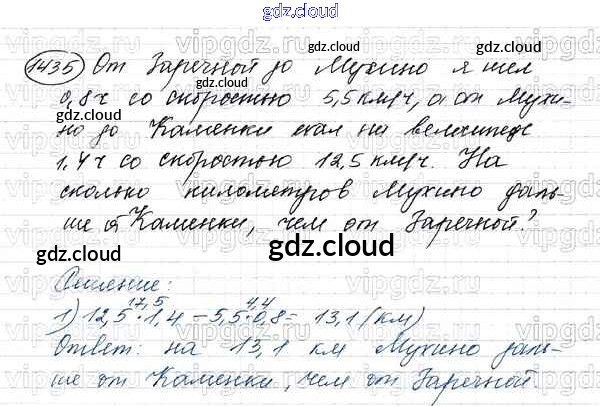 gdz.cloud
1435 От Заречной до Мухино я шел
0,8 ч со скоростью 5,5 км/ч, а от Мухи-
но до Каменки ехал на велосипеде
1,4 ч со скоростью 12,5 км/ч. На
сколько километров Мухино даль-
ше от Каменки, чем от Заречной?
gdz.cloud
Решение:
17,5 4,4
1) 12,5 · 1,4 – 5,5 · 0,8 = 13,1 (км)
Ответ: на 13,1 км Мухино даль-
ше от Каменки, чем от Заречной.
gdz.cloud